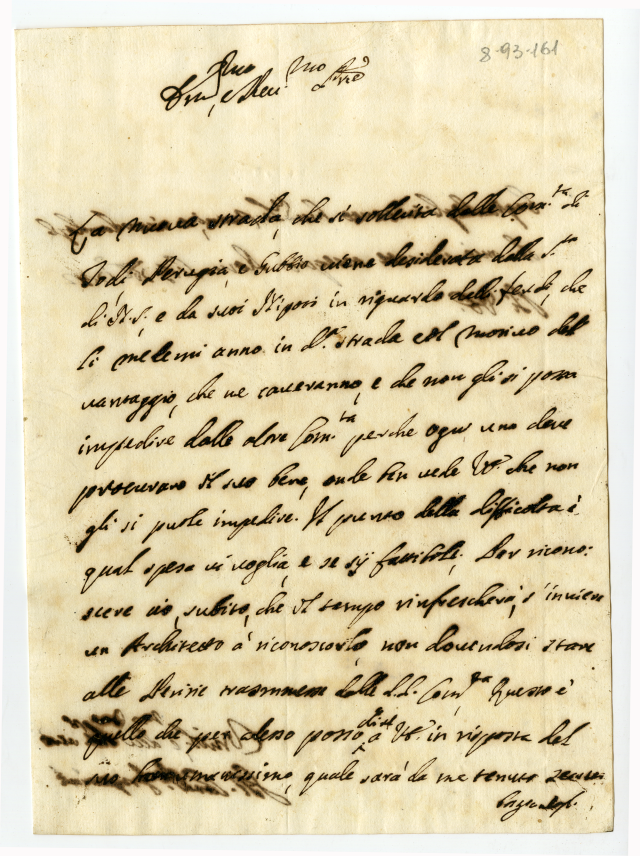 8-93-161
Ill.mo e Rev. mo Sig.re
La nuova strada, che si sollecita dalle Com.tà di
Todi, Perugia, e Gubbio viene desiderata dalla S.tà
di N.S., e da suoi Nipoti in riguardo delli feudi, che
li metteranno in d.a strada et il motivo del
vantaggio, che ne caveranno, e che non gli si possa
impedire dalle altre Com.tà perche ogn' uno deve
procurare il suo bene, onde ben vede V.S. che non
gli si puole impedire. Il punto della difficoltà è
qual spesa vi voglia, e se sij fattibile. Per ricono:
scere ciò, subito, che il tempo rinfrescherà, s' invierà
un Architetto à riconoscerlo, non dovendosi stare
alle Perizie trasmesse dalle d.e Com.tà Questo è
quello che per adesso posso dire à V.S. in risposta del
suo humanissimo, quale sarà da me tenuto